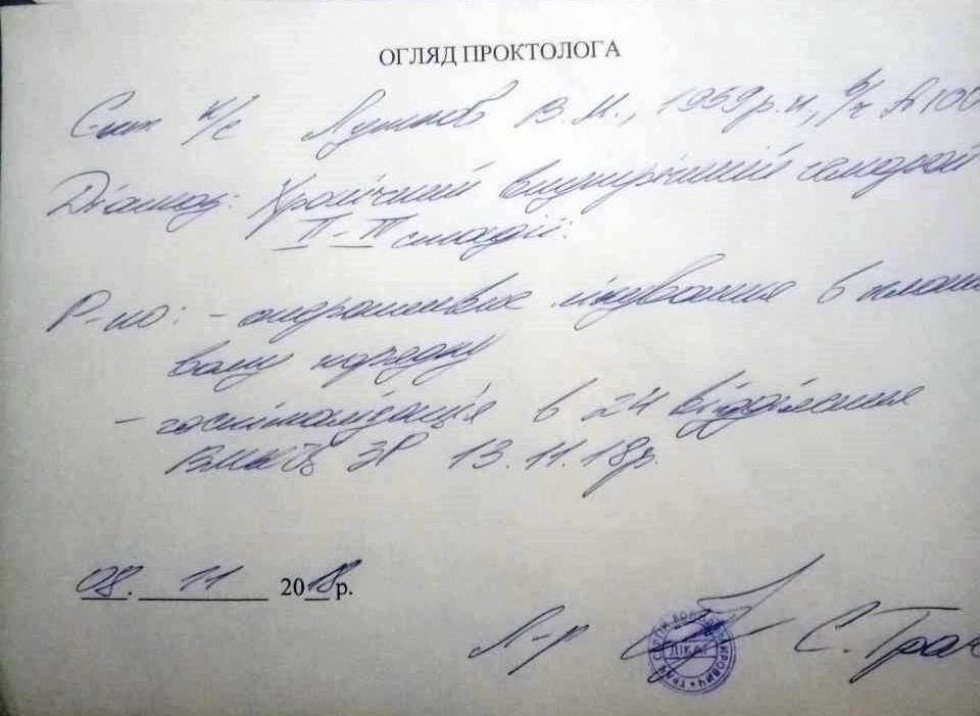 ОГЛЯД ПРОКТОЛОГА
к/с В.М., 1959 р.н., в/ч А100
Діагноз: Хронічний внутрішній геморой
ІІ-ІІІ стадії.
Р-но: - оперативне лікування в плано
вому порядку
- госпіталізація в 24 відділення
ВМКЦ ЗР 13.11.18р.
08. 11 2018 р.
Л-р С. Трач
ЛІКАР